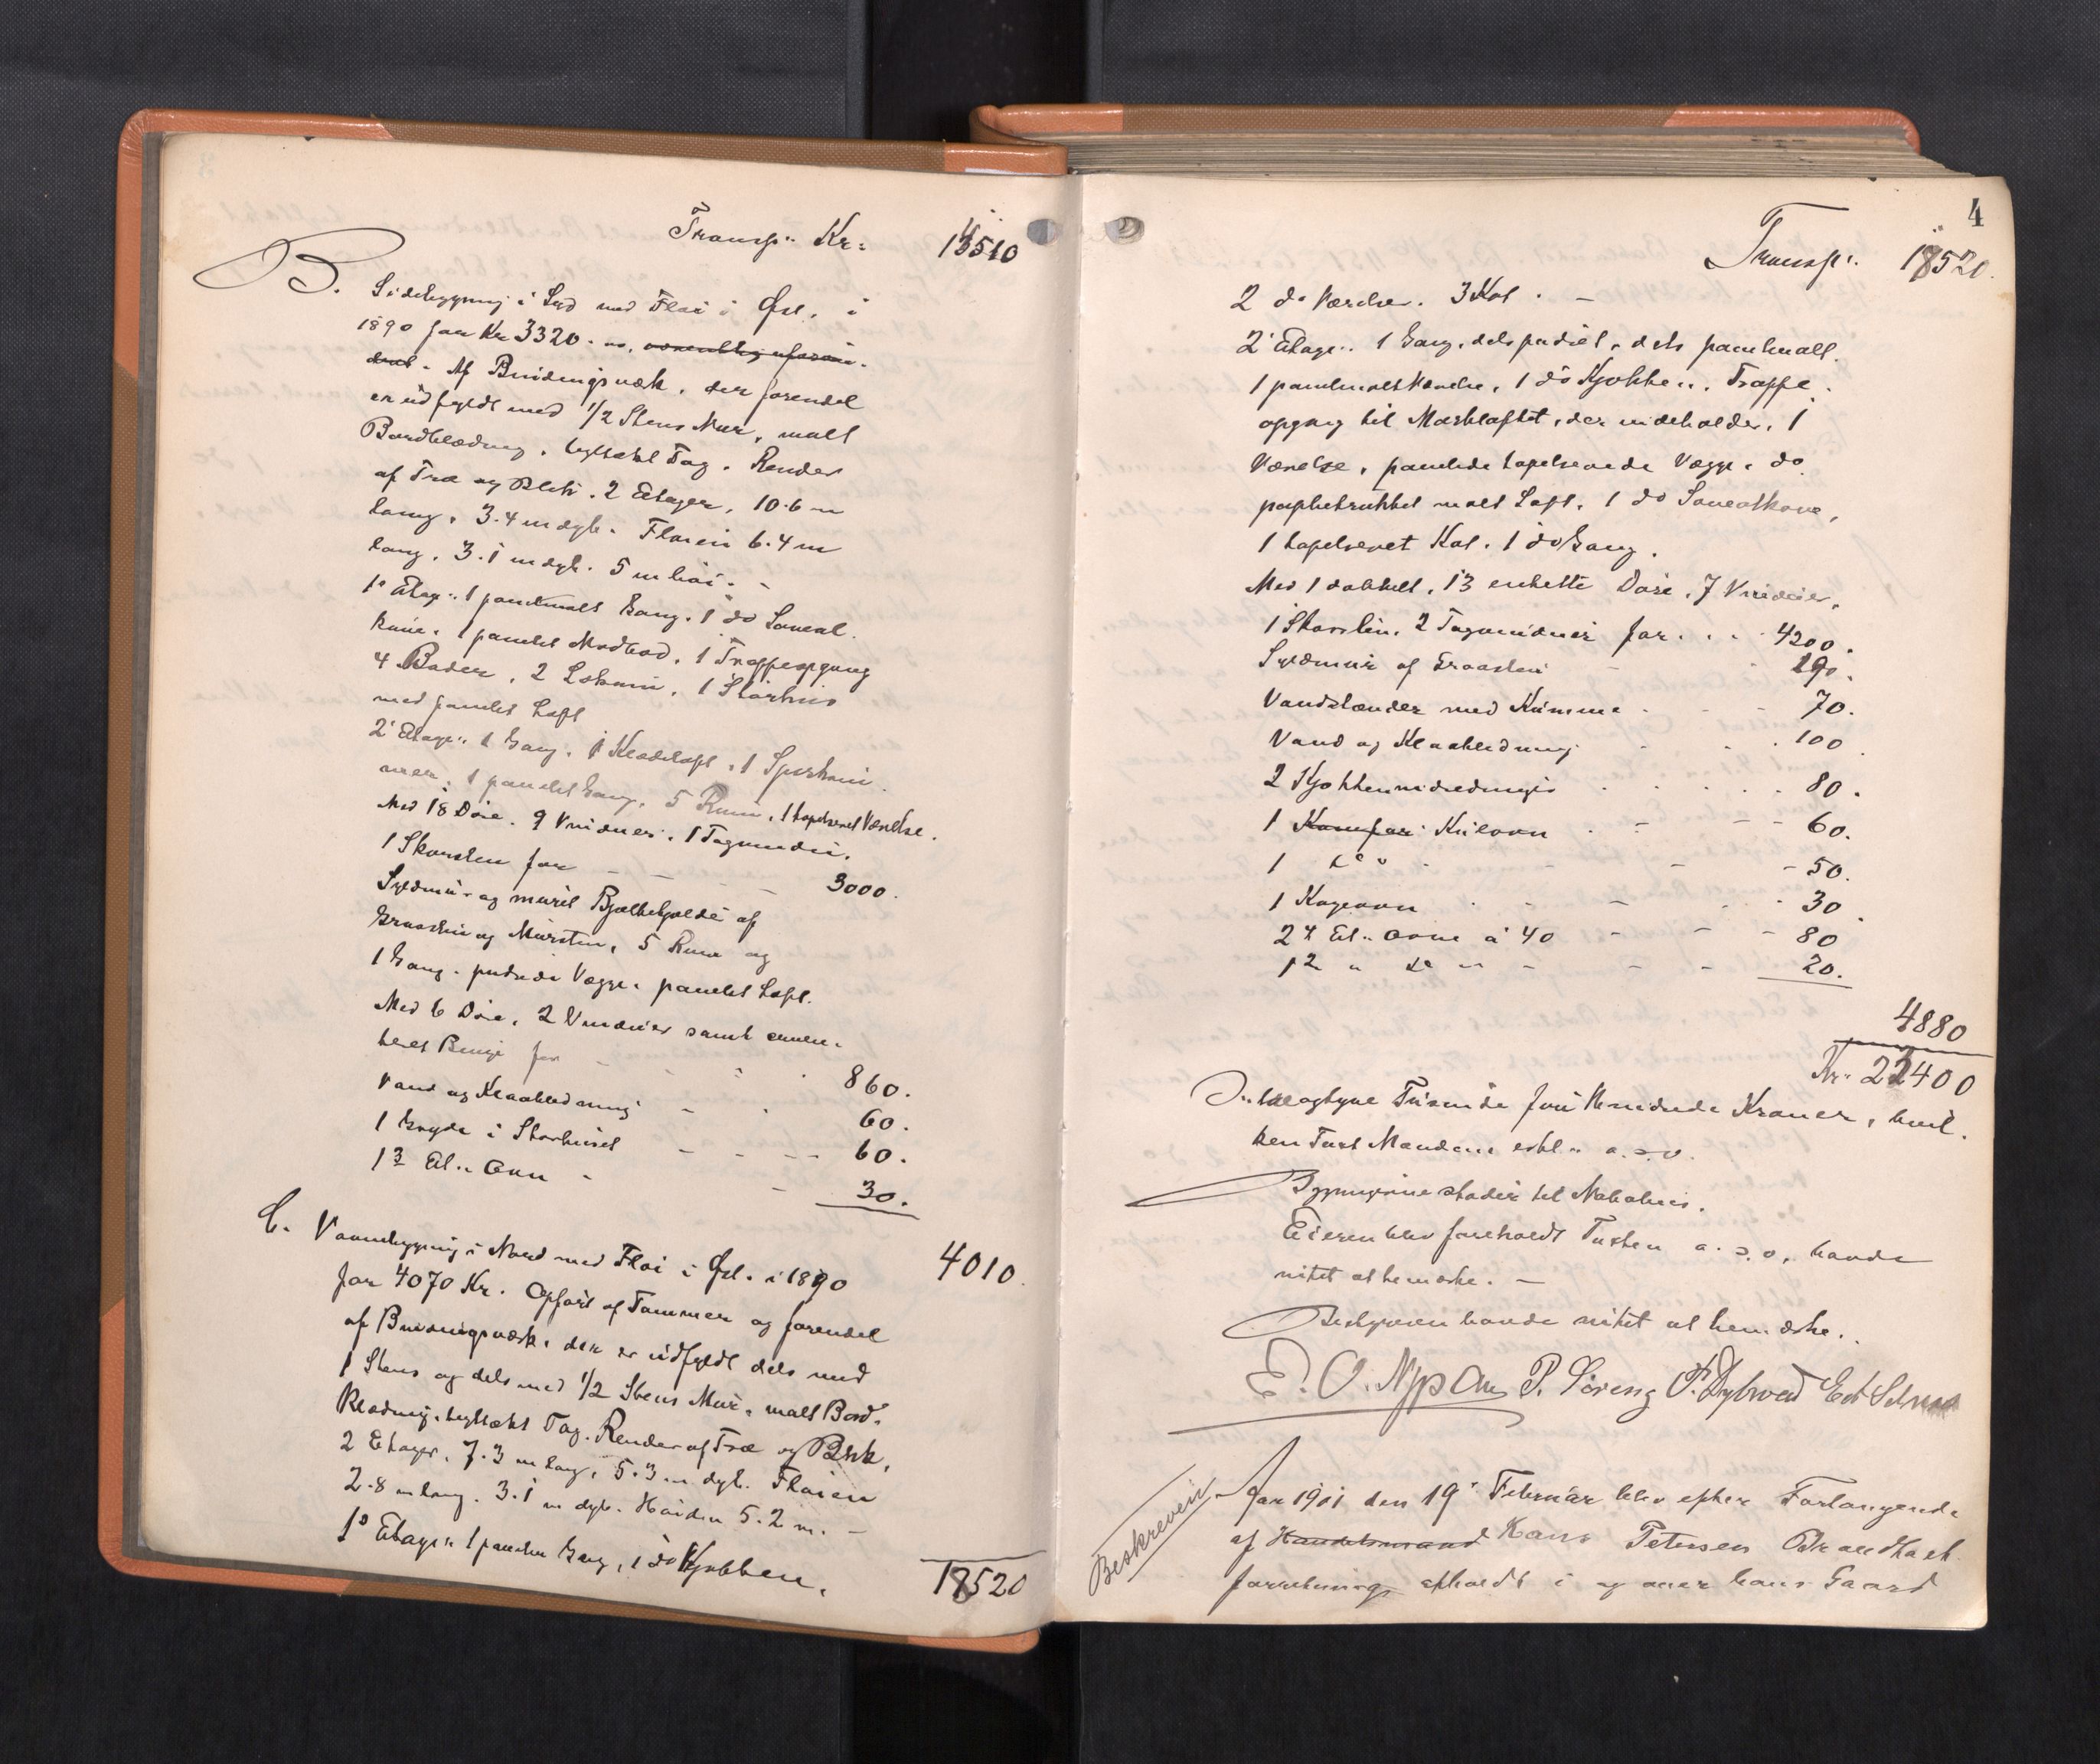 Transp. Kr. 14510
B. Sidebygning i Syd med Fløi i Øst. i
1890 for Kr 3320. væsentlig uforan-
dret. Af Bindingsværk, der forendel
er udfyldt med 1/2 Stens Mur, malt
Bordklædning, teglhækt Tag. Render
af Træ og Blik. 2 Etager, 10.6 m
lang, 3.4 m dyb. Fløien 6.4 m
lang, 3.1 m dyb. 5 m høi. -
1ste Etage: 1 panelmalt Gang. 1 do Soveal.
kove. 1 panelet Madbod. 1 Trappeopgang
4 Boder, 2 Lokum, 1 Størhus
med panelet Loft
2. Etage: 1 Gang. 1 Klædeloft. 1 Spiskam
mer. 1 panelet Gang. 5 Rum, 1 tapetseret Værelse.
Med 18 Døre. 9 Vinduer. 1 Tagvindu.
1 Skorsten for - - - 3000.
Syldmur og muret Bjelkekjelder af
Graasten og Mursten, 5 Rum og
1 Gang. pudsede Vægge. panelet Loft.
Med 6 Døre, 2 Vinduer samt cemen-
teret Binge for - - - 860.
Vand og Kloakledning - - 60.
1 Gryde i Størhuset - - - 60.
1 3 Et. Ovn - - 30.
4010.
C. Vaanebygning i Nord med Fløi i Øst. i 1890
for 4070 Kr. Opført af Tømmer og forendel
af Bindingsværk, der er udfyldt dels med
1 Stens og dels med 1/2 Stens Mur, malt Bord-
klædning, teglhækt Tag. Render af Træ og Blik,
2 Etager, 7.3 m lang, 5.3 m dyb. Fløien
2.8 m lang. 3.1 m dyb. Høiden 5.2 m. -
1ste Etage: 1 panelet Gang, 1 do Kjøkken,
18520
4
Transp. 18520.
2 do Værelser. 3 Kot. -
2. Etage: 1 Gang, dels pudset, dels panelmalt.
1 panelmalt Værelse, 1 do Kjøkken. Trappe-
opgang til Mørkloftet, der indeholder, 1
Værelse, panelede tapetserede Vægge. do
papbetrukket malt Loft. 1 do Sovealkove,
1 tapetseret Kot. 1 do Gang.
Med 1 dobbelt, 13 enkelte Døre, 7 Vinduer,
1 Skorsten. 2 Tagvinduer for . . . 4200.
Syldmur af Graasten - 190.
Vandstænder med Kumme - - - 70.
Vand og Kloakledning - - . 100.
2 Kjøkkenindredninger . . . . . 80.
1 Komfur Kulovn . - - - 60.
1 do - - - 50.
1 Kogeovn . - - - 30.
2 4 Et. Ovne à 40 - - - 80
1 2 " do " - - - 20.
4880
Kr. 22400
To og tyve Tusinde fire Hundrede Kroner, hvil-
ken Taxt Mændene erkl. a. s. o.
Bygningerne støder til Nabohus.
Eieren blev foreholdt Taxten a. s. o, havde
intet at bemærke. -
Bestyreren havde intet at bemærke.
E. O. Nypan P. Søreng P. Dybvad
Beskreven
Aar 1901 den 19. Februar blev efter Forlangende
af Handelsmand Hans Petersen Brandtaxt
forretning afholdt i og over hans Gaard